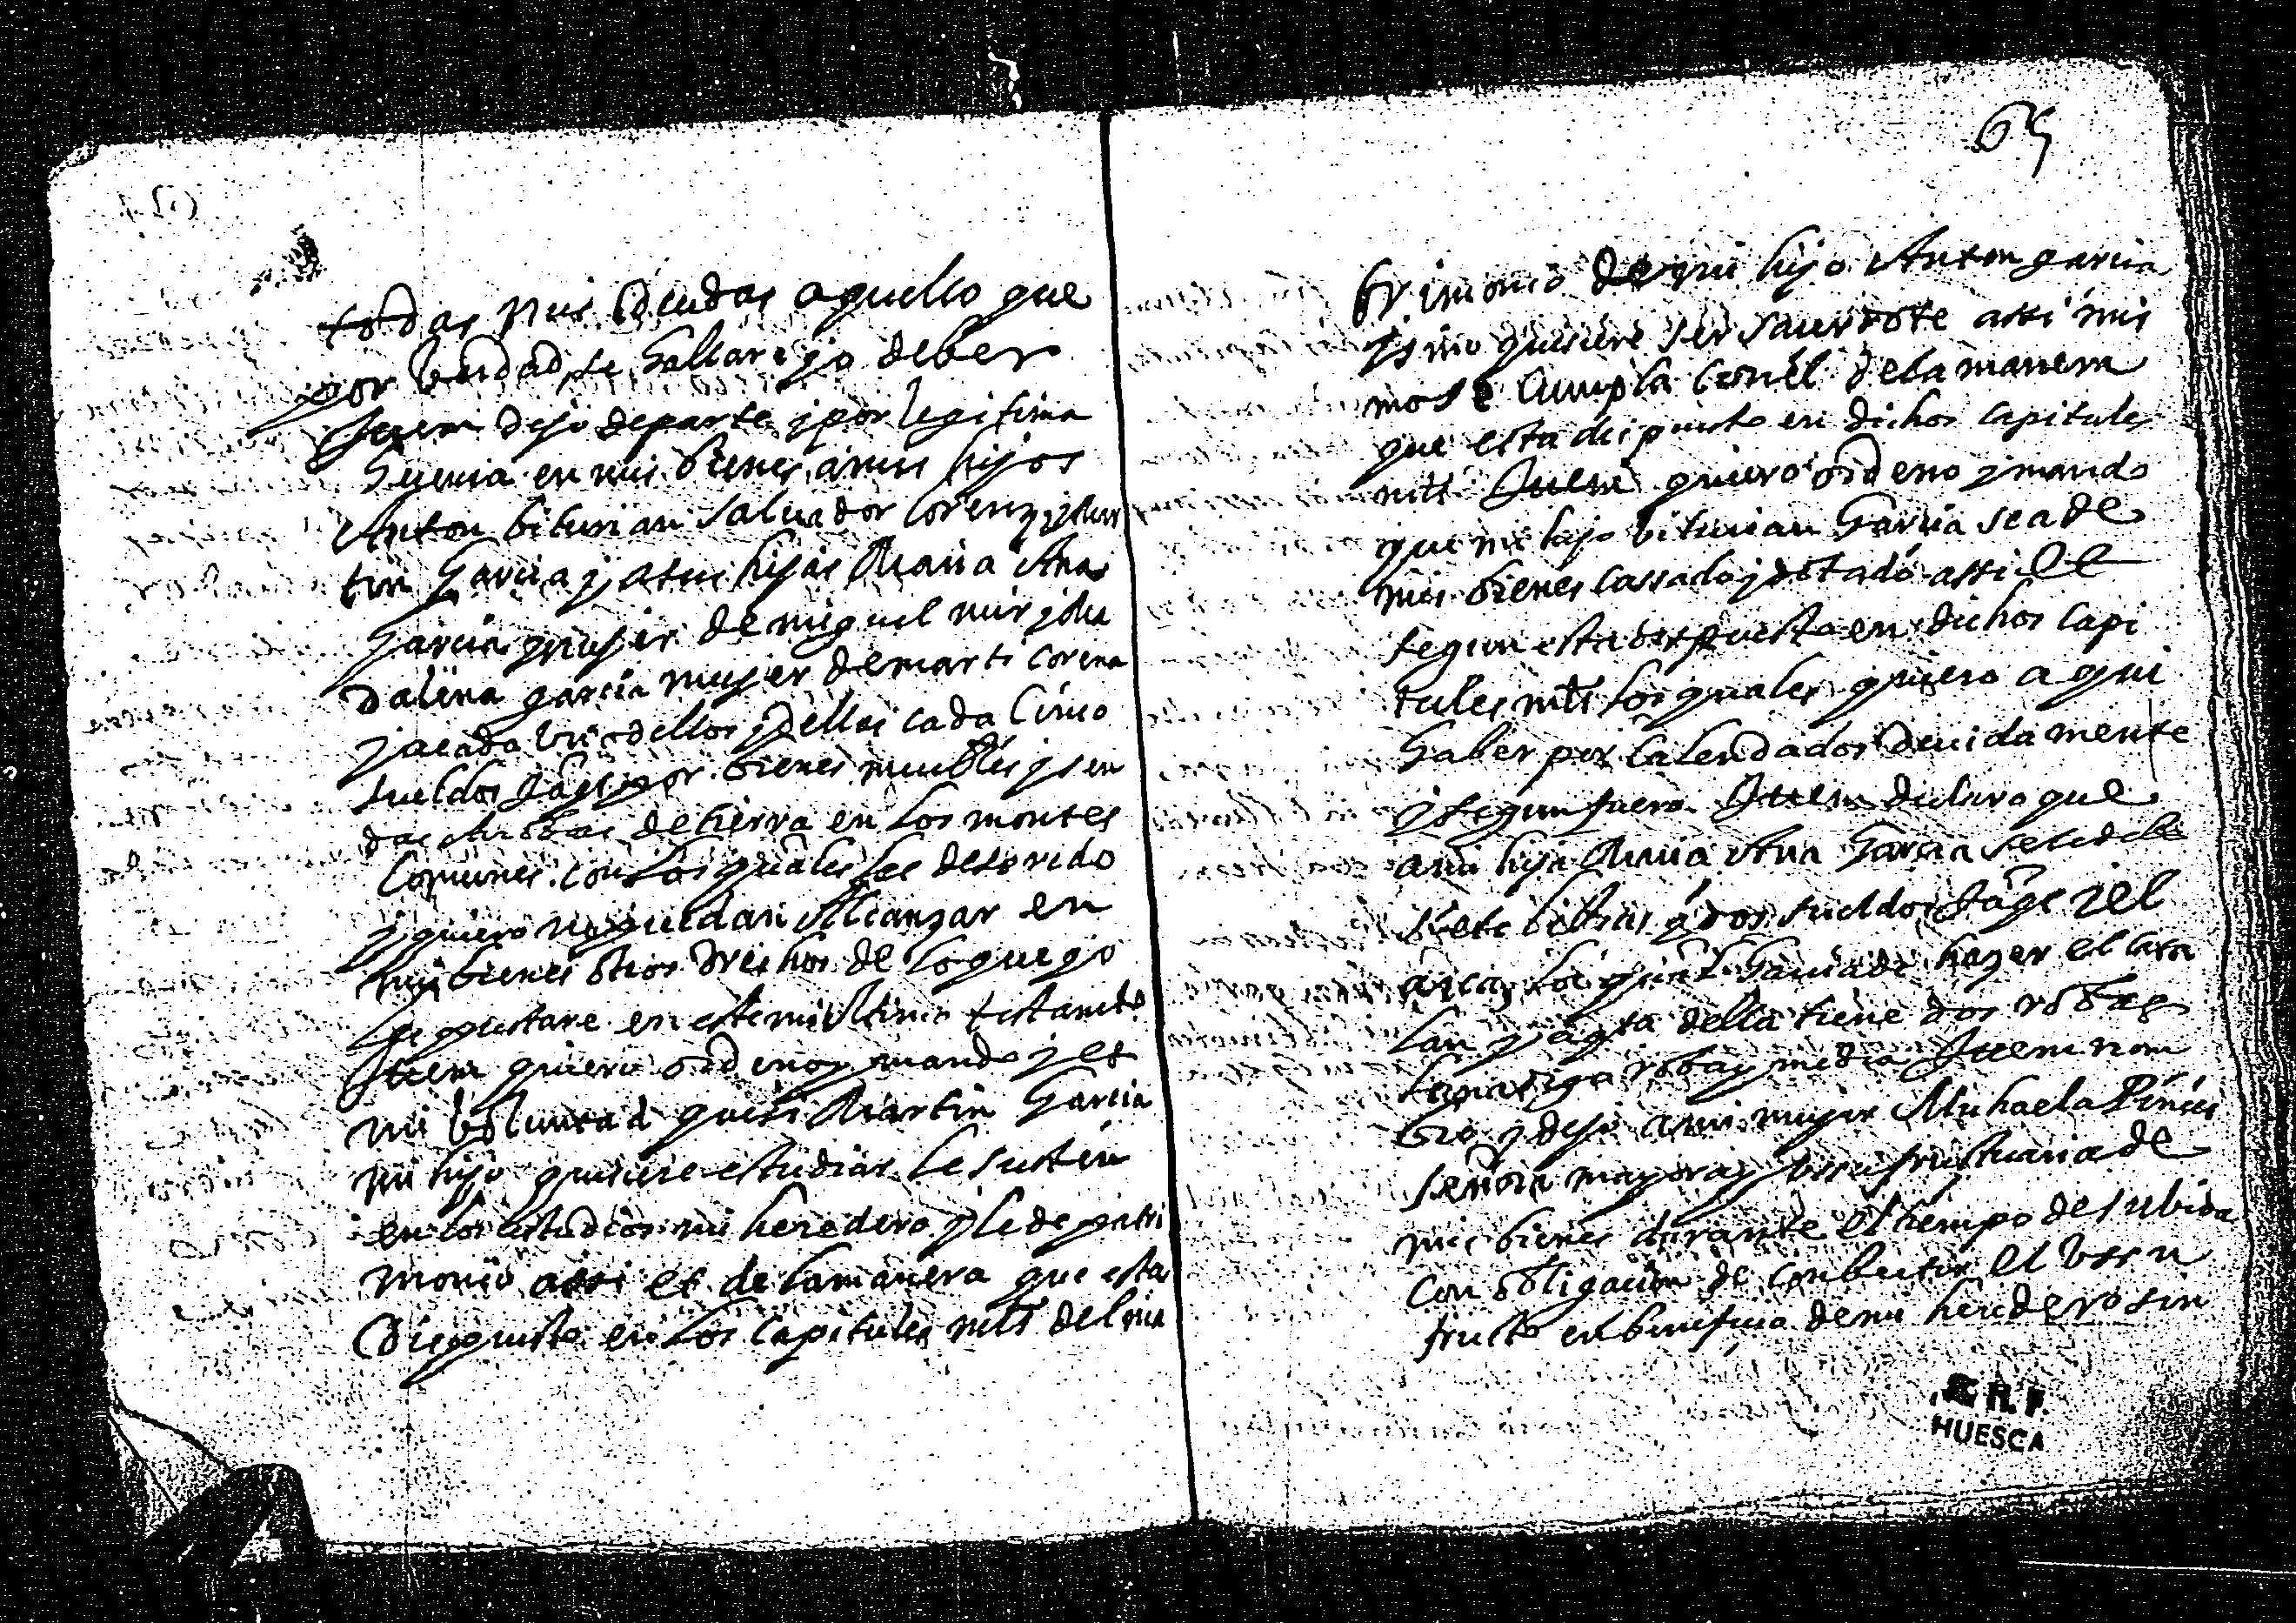 todas mis deudas aquello que
por berdad se hallare yo deber
Ittem dejo de parte y por legitima
heyencia en mis bienes a mis hijos
Anton biturian saluador Lorenz y Mar
tin Garcia y a mis hijas Maria Ana
Garcia mujer de miguel mir y Ma
dalena garcia mujer de marti
y a cada uno dellos y dellas cada cinco
sueldos Jaqs por bienes muebles y sen
das de tierra en los montes
comunes con los quales les
y quiero no puedan Alcanzar en
mis bienes otros dreichos de lo que yo
les en este mi Ultimo testamto
Ittem quiero ordeno y mando y es
mi boluntad que si Martin Garcia
mi hijo quisiere estudiar le susten
en los estudios mi heredero y le de patri
monio assi et de la manera que esta
dispuesto en los Capitules mtls del ma
65
trimonio de mi hijo Anton garcia
y si no quisiere ser sacerdote assi mis
mo se cumpla con el de la manera
que esta dispuesto en dichos capitules
mtls Ittem quiero ordeno y mando
que mi hijo biturian Garcia sea de
mis bienes cassado y dotado assi
segun esta dispuesto en dichos capi
tules mtls los quales quiero aqui
haber por calendados deuidamente
y segun fuero Ittem declaro que
a mi hija Maria Ana Garcia se le debe
siete libras y dos sueldos Jaqs y el
arca, los qual hauia de hazer el
lan y a qta della tiene dos robas
roba y media Ittem nom
bro y dejo a mi mujer Michaela
señora mayora y ussufructuaria de
mis bienes durante el tiempo de su bida
con obligacion de conbertir el ussu
fructo en beneficio de mi heredero sin
HUESCA